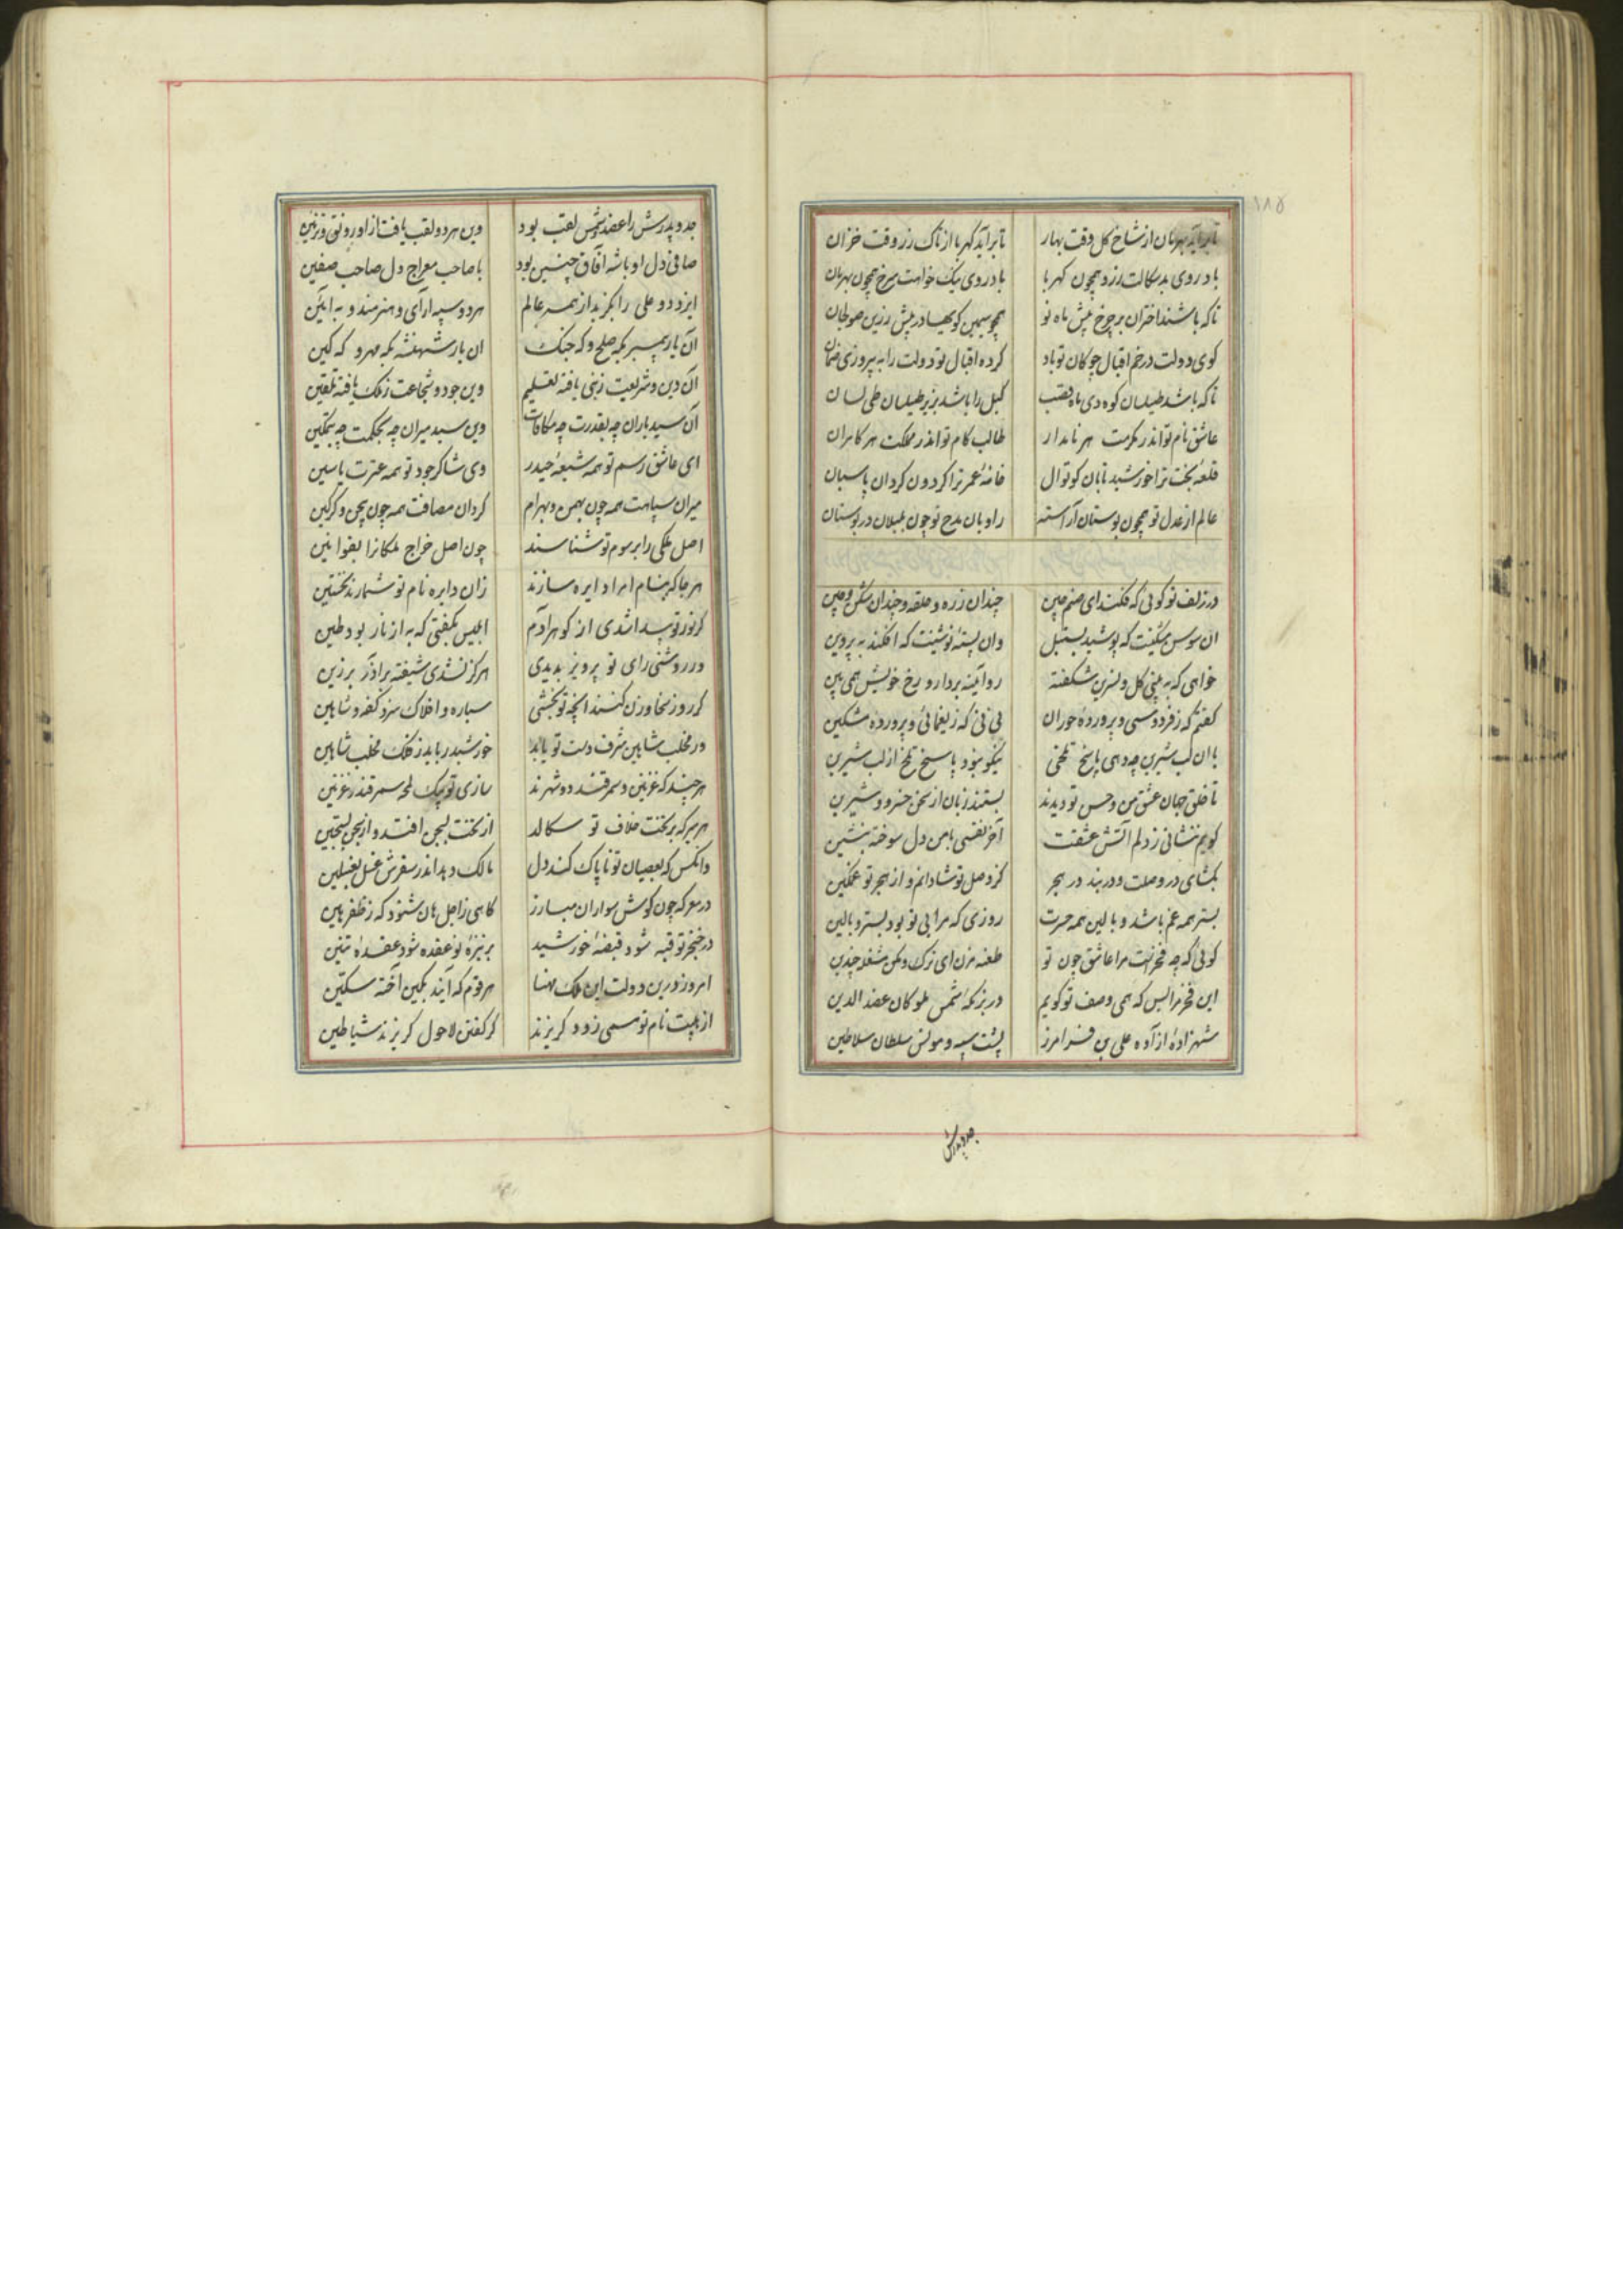 ۱۸۵
تا برآید بهرمان از شاخ گل وقت بهار تا برآید کهربا از تاک رز وقت خزان
باد روی بدسکالت زرد همچون کهربا باد روی نیک خواهت سرخ همچون بهرمان
تا که باشند اختران بر چرخ پیش ماه نو همچو سیمین کویها در پیش زرین صولجان
کوی دولت در خم اقبال چوکان تو باد کرده اقبال تو دولت را به پیروزی ضمان
تا که باشد طیلسان کوه دی ماه قصب کبل را باشد بزیر طیلسان طی لسان
عاشق نام تو اندر مکرمت هر نامدار طالب کام تو اندر مملکت هر کامران
قلعهٔ بخت ترا خورشید تابان کوتوال خانهٔ عمر ترا کردون کردان پاسبان
عالم از عدل تو همچون بوستان آراسته راویان مدح تو چون بلبلان در بوستان
در زلف تو کوئی که فکند ای صنم چین چندان زره و حلقه و چندان شکن و چین
ان سوسن مشکینت که پوشید بسنبل وان پسته نوشینت که افکند به پروین
خواهی که به بینی کل و نسرین شکفته رو آینه بردار و رخ خویش همی بین
کفتم که ز فردوسی و پروردهٔ حوران نی نی که ز یغمائی و پرورده مشکین
با ان لب شیرین چه دهی پاسخ تلخی نیکو نبود پاسخ تلخ از لب شیرین
تا خلق جهان عشق من و حسن تو دیدند بستند زبان از سخن خسرو و شیرین
کویم بنشانی ز دلم آتش عشقت آخر نفسی با من دل سوخته بنشین
بکشای در وصلت و در بند در هجر کز وصل تو شادانم و از هجر تو غمکین
بستر همه غم باشد و بالین همه حسرت روزی که مرا بی تو بود بستر و بالین
کوئی که چه فخرست مرا عاشق چون تو طعنه مزن ای ترک و مکن مشغله چندین
این فخر مرا بس که همی وصف تو کویم در بزمکه شمس ملوکان عضد الدین
شهزادهٔ آزاده علی بن فرامرز پشت سپه و مونس سلطان سلاطین
جد و پدرش
جد و پدرش را عضد و شمس لقب بود وین هر دو لقب یافت از او رونق و تزئین
صافی دل او باشه آفاق چنین بود با صاحب معراج دل صاحب صفین
ایزد دو علی را بکزید از همه عالم هر دو سپه آرای و هنرمند و به آئین
آن یار پیمبر بکه صلح و که جنک ان یار شهنشه بکه مهر و که کین
آن دین و شریعت ز نبی یافته تعلیم وین جود و شجاعت ز ملک یافته تلقین
آن سید یاران چه بقدرت چه مکافات وین سید میران چه بحکمت چه بتمکین
ای عاشق رسم تو همه شیعهٔ حیدر وی شاکر جود تو همه عترت یاسین
میران سپاهت همه چون بهمن و بهرام کردان مصافت همه چون بیجن و کرکین
اصل ملکی را برسوم تو شناسند چون اصل خراج ملکانرا بقوانین
هر جا که بنام امرا دایره سازند زان دایره نام تو شمارند نخستین
کر نور تو پیدا شدی از کوهر آدم ابلیس نکفتی که به از نار بود طین
ور روشنی رای تو پرویز بدیدی هرکز نشدی شیفته بر آذر برزین
کر روز سخا وزن کنند آنچه تو بخشی سیاره و افلاک سزد کفه و شاهین
ور مخلب شاهین شرف دست تو یابد خورشید رباید ز فلک مخلب شاهین
هر چند که غزنین و سمرقند دو شهرند سازی تو بیک لحظه سمرقند ز غزنین
هر میر که بر تخت خلاف تو سکالد از تخت بسجن افتد و از سجن بسجین
وانکس که بعصیان تو ناپاک کند دل مالک دهد اندر سقرش غسل بغسلین
در معرکه چون کوش سواران مبارز کاهی ز اجل هان شنود که ز ظفر هین
در خنجر تو قبه شود قبضهٔ خورشید بر نیزهٔ تو عقده شود عقدهٔ تنین
امروز درین دولت این ملک مهنا هر قوم که آیند بکین آخته سکین
از هیبت نام تو سمی زود کریزند کر کفتن لاحول کریزند شیاطین